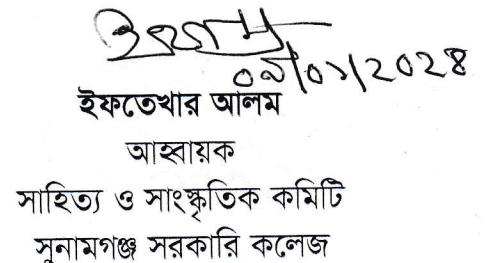 ০৯/০১/২০২৪
ইফতেখার আলম
আহ্বায়ক
সাহিত্য ও সাংস্কৃতিক কমিটি
সুনামগঞ্জ সরকারি কলেজ